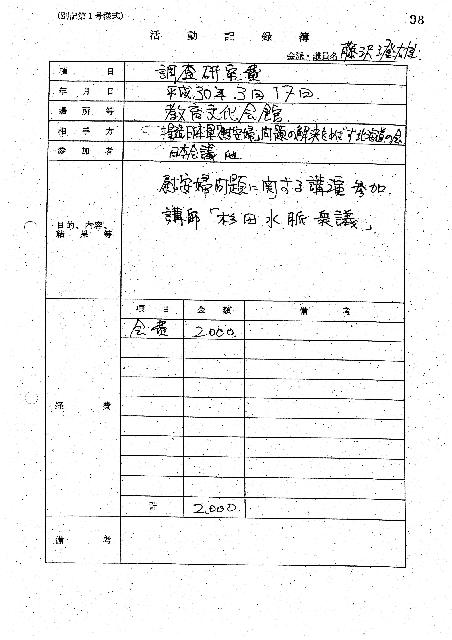 (別記第1号様式)
98
活動記録簿
会派・議員名 藤沢澄雄
項目 調査研究費
年月日 平成30年3月17日
場所等 教育文化会館
相手方 捏造日本軍「慰安婦」問題の解決をめざす北海道の会
参加者 日本会議 他
目的、内容、結果等
慰安婦問題に関する講演参加
講師「杉田水脈衆議」
経費
項目 金額 備考
会費 2,000
計 2,000
備考